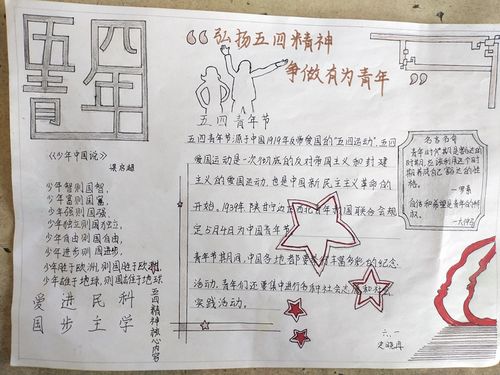 五四
青年
弘扬五四精神
争做有为青年
五四青年节
《少年中国说》
梁启超
少年智则国智,
少年富则国富,
少年强则国强,
少年独立则国独立,
少年自由则国自由,
少年进步则国进步,
少年胜于欧洲,则国胜于欧洲,
少年雄于地球,则国雄于地球
爱国
进步
民主
科学
五四精神核心内容
五四青年节源于中国1919年反帝爱国的"五四运动",五四
爱国运动是一次彻底的反对帝国主义和封建
主义的爱国运动,也是中国新民主主义革命的
开始。1939年,陕甘宁边区西北青年救国联合会规
定5月4日为中国青年节
青年节其间,中国各地都要举行丰富多彩的纪念
活动,青年们还要集中进行各种社会志愿和社会
实践活动。
名言名句
青年时
时期,应该利用这个时
期养成自己
格。
自信和希望是青年的特
权。
六、一